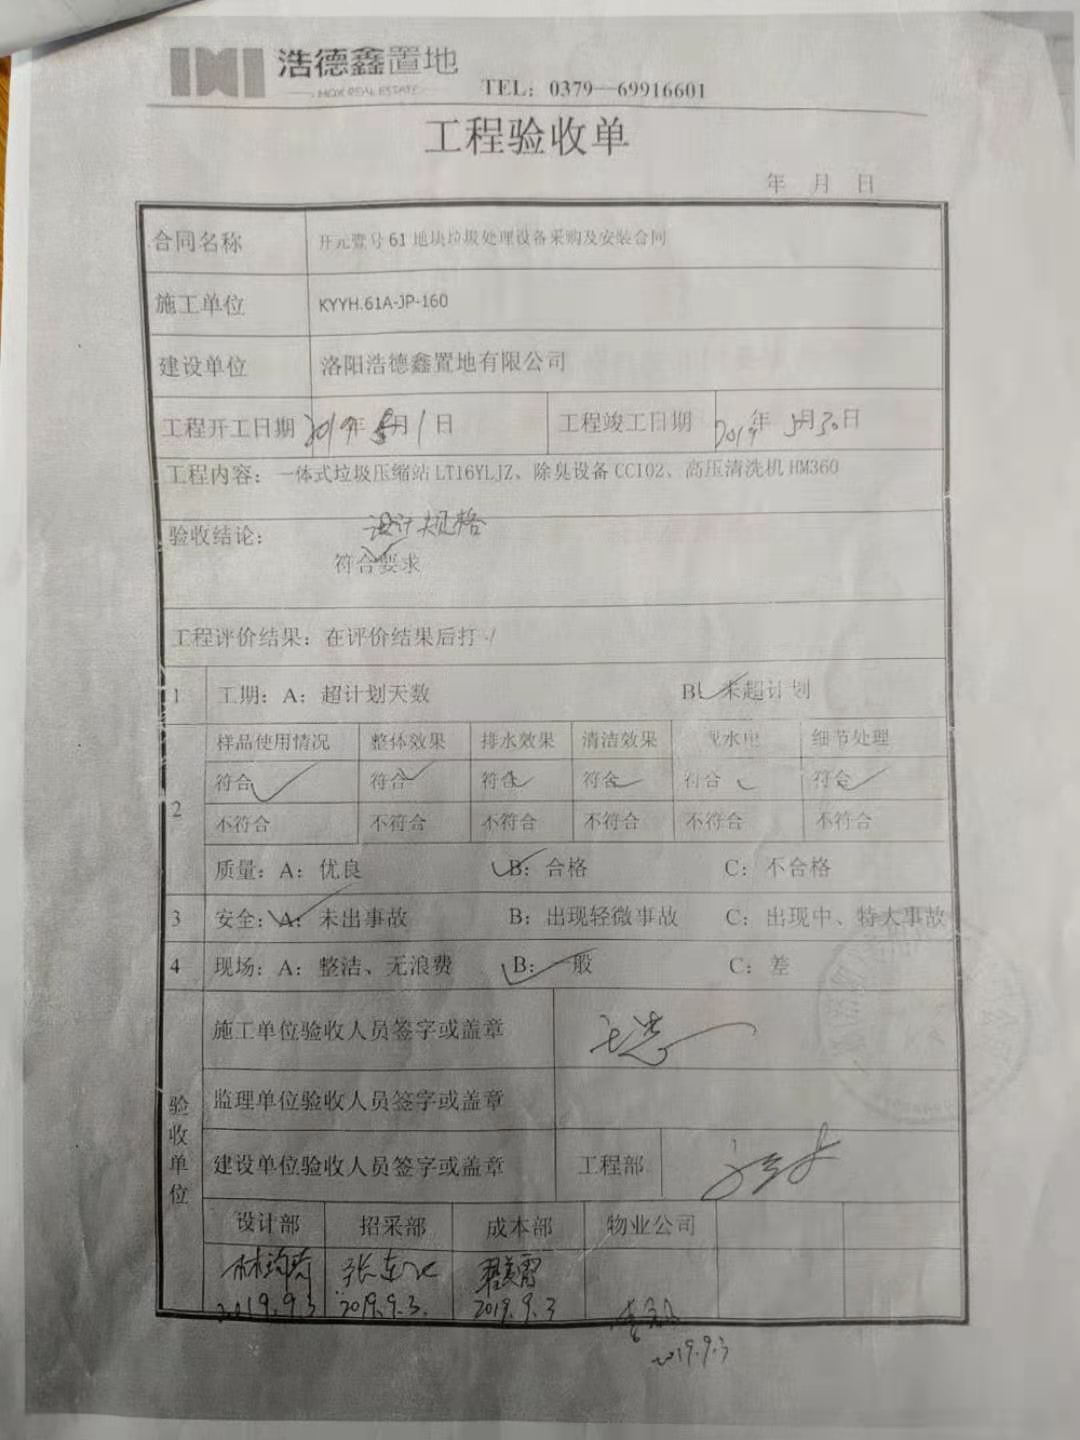 浩德鑫置地
TEL：0379—69916601
工程验收单
年 月 日
合同名称 开元壹号61地块垃圾处理设备采购及安装合同
施工单位 KYYH.61A-JP-160
建设单位 洛阳浩德鑫置地有限公司
工程开工日期 2019年8月1日 工程竣工日期 2019年 月30日
工程内容：一体式垃圾压缩站LT16YLJZ、除臭设备CC102、高压清洗机HM360
设计规格
验收结论：
符合要求
工程评价结果：在评价结果后打√
1 工期：A：超计划天数 B 未超计划
样品使用情况 整体效果 排水效果 清洁效果 水电 细节处理
符合 符合 符合 符合 符合 符合
2
不符合 不符合 不符合 不符合 不符合 不符合
质量：A：优良 B：合格 C：不合格
3 安全：A：未出事故 B：出现轻微事故 C：出现中、特大事故
4 现场：A：整洁、无浪费 B：一般 C：差
施工单位验收人员签字或盖章
监理单位验收人员签字或盖章
验收单位
建设单位验收人员签字或盖章 工程部
设计部 招采部 成本部 物业公司
2019.9.3 2019.9.3. 2019.9.3
2019.9.3